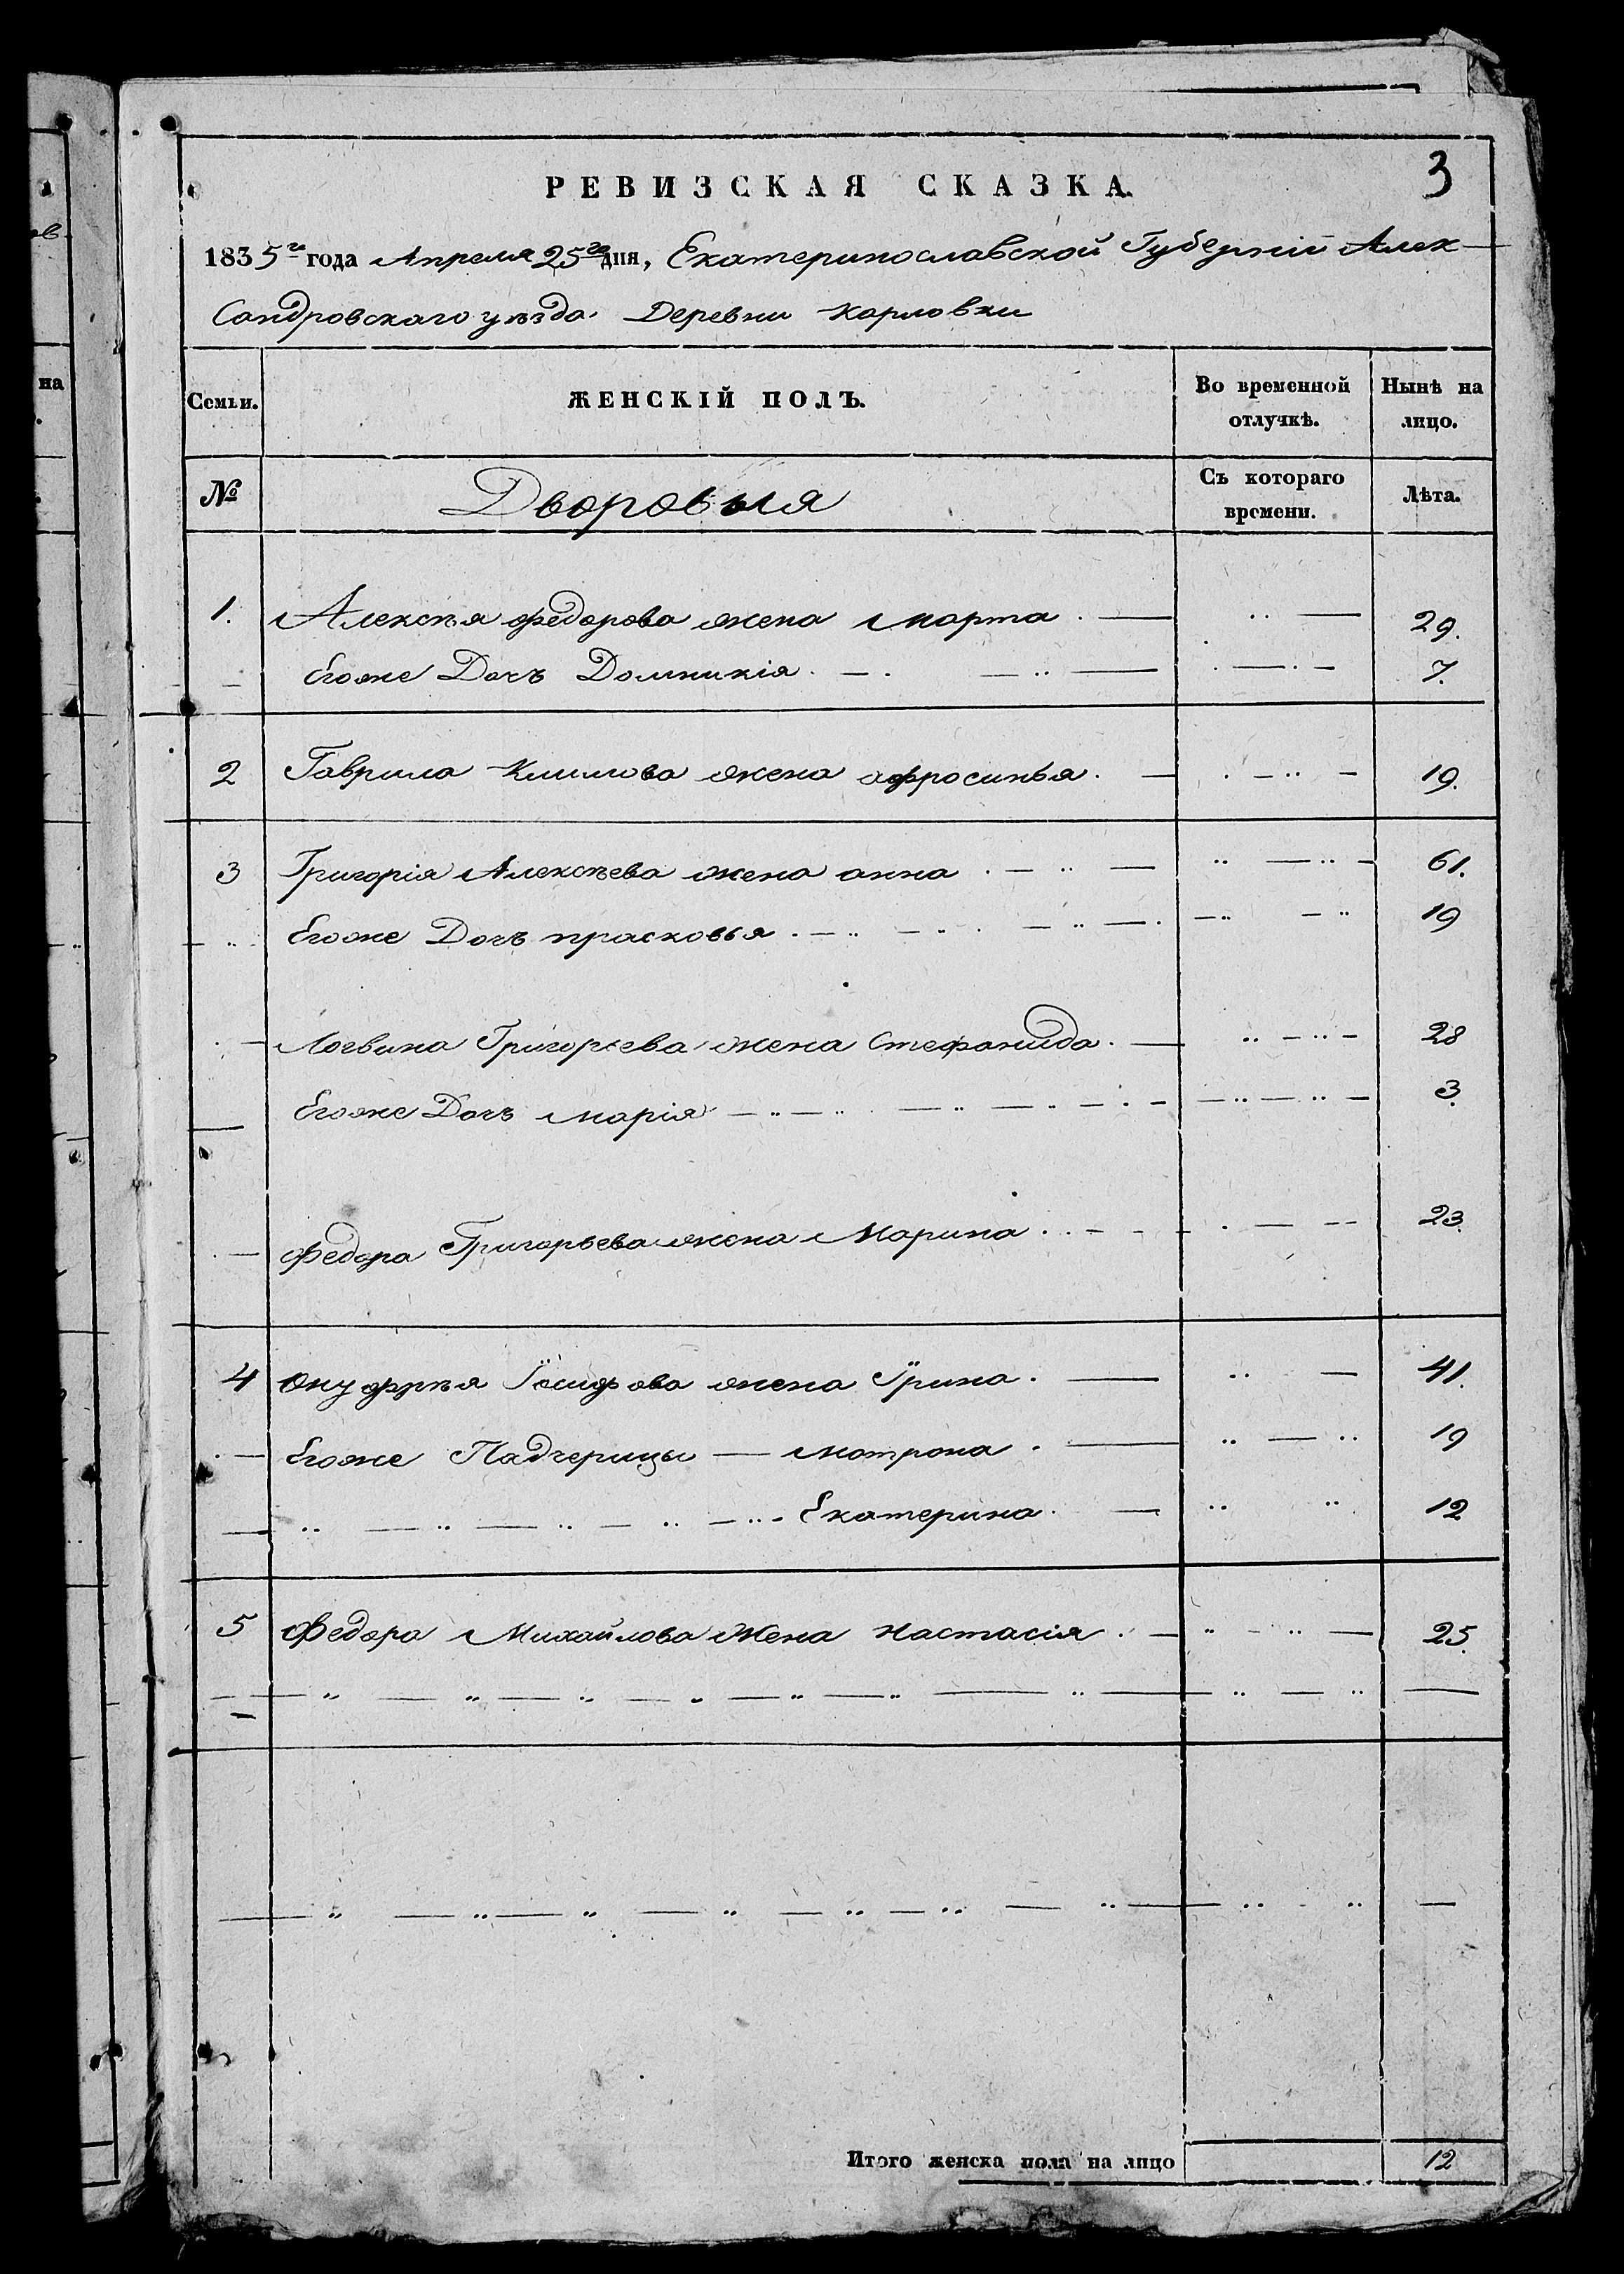 3
РЕВИЗСКАЯ СКАЗКА.
1835го года Апреля 25го дня, Екатеринославской Губерніи Алек
Сандровскаго уѣзда Деревни Карловки
Семьи. ЖЕНСКІЙ ПОЛЪ. Во временной отлучкѣ. Нынѣ на лицо.
№ Дворовыя Съ котораго времени. Лѣта.
1. Алексѣя Федорова жена Марта 29.
Егоже Дочъ Домникія 7.
2 Гаврила Климова жена афросинья 19.
3 Григорія Алексѣева жена анна 61.
Егоже Дочъ прасковья 19
Логвина Григорьева жена Стефанида 28
Егоже Дочъ марія 3.
Федора Григорьева жена Марина 23.
4 Онуфрѣя Іосифова жена Ірина 41.
Егоже Падчерицы — мотрона 19
Екатерина 12
5 Федора Михайлова жена настасія 25.
Итого женска пола на лицо 12
на